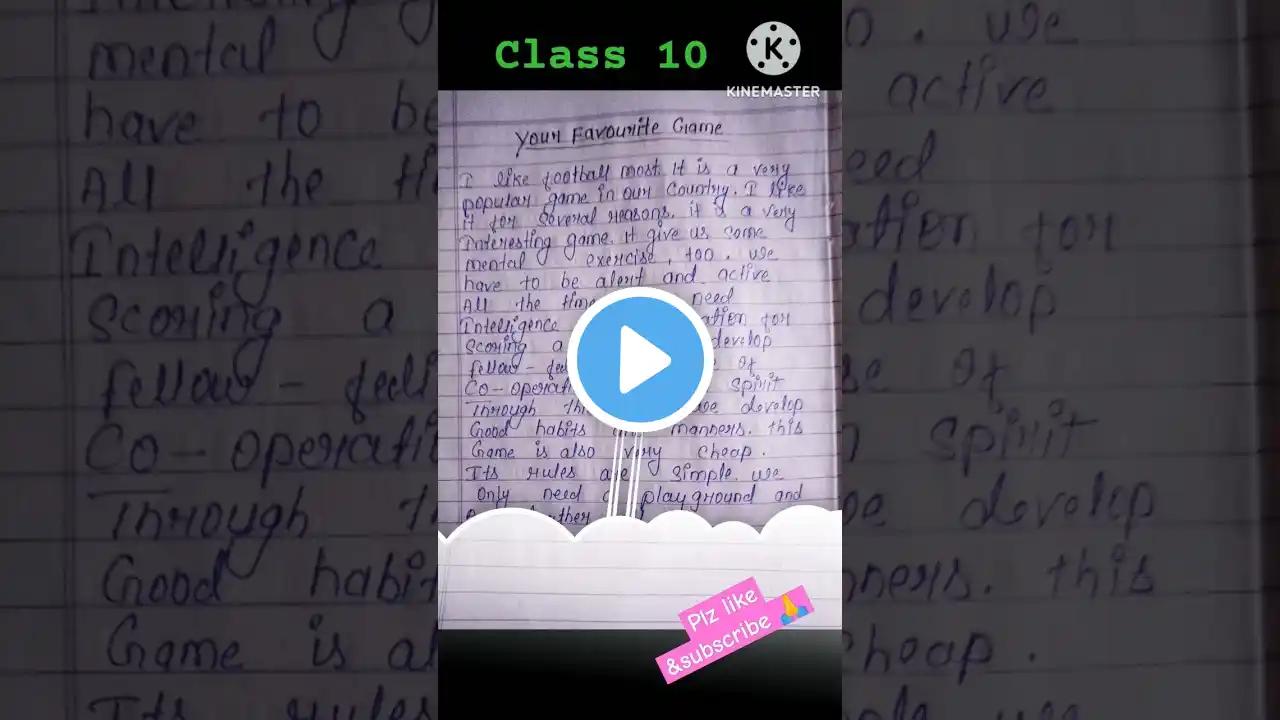 Class 10
KINEMASTER
Your Favourite Game
I like football most. It is a very
popular game in our Country. I like
it for several reasons. it is a very
Interesting game. it give us some
mental exercise, too. we
have to be alert and active
All the time need
Intelligence for
Scoring a develop
fellow- of
Co-operation spirit
Through we develop
Good habits and manners. this
Game is also very cheap.
Its rules are simple. we
Only need a playground and
Plz like
&subscribe 🙏